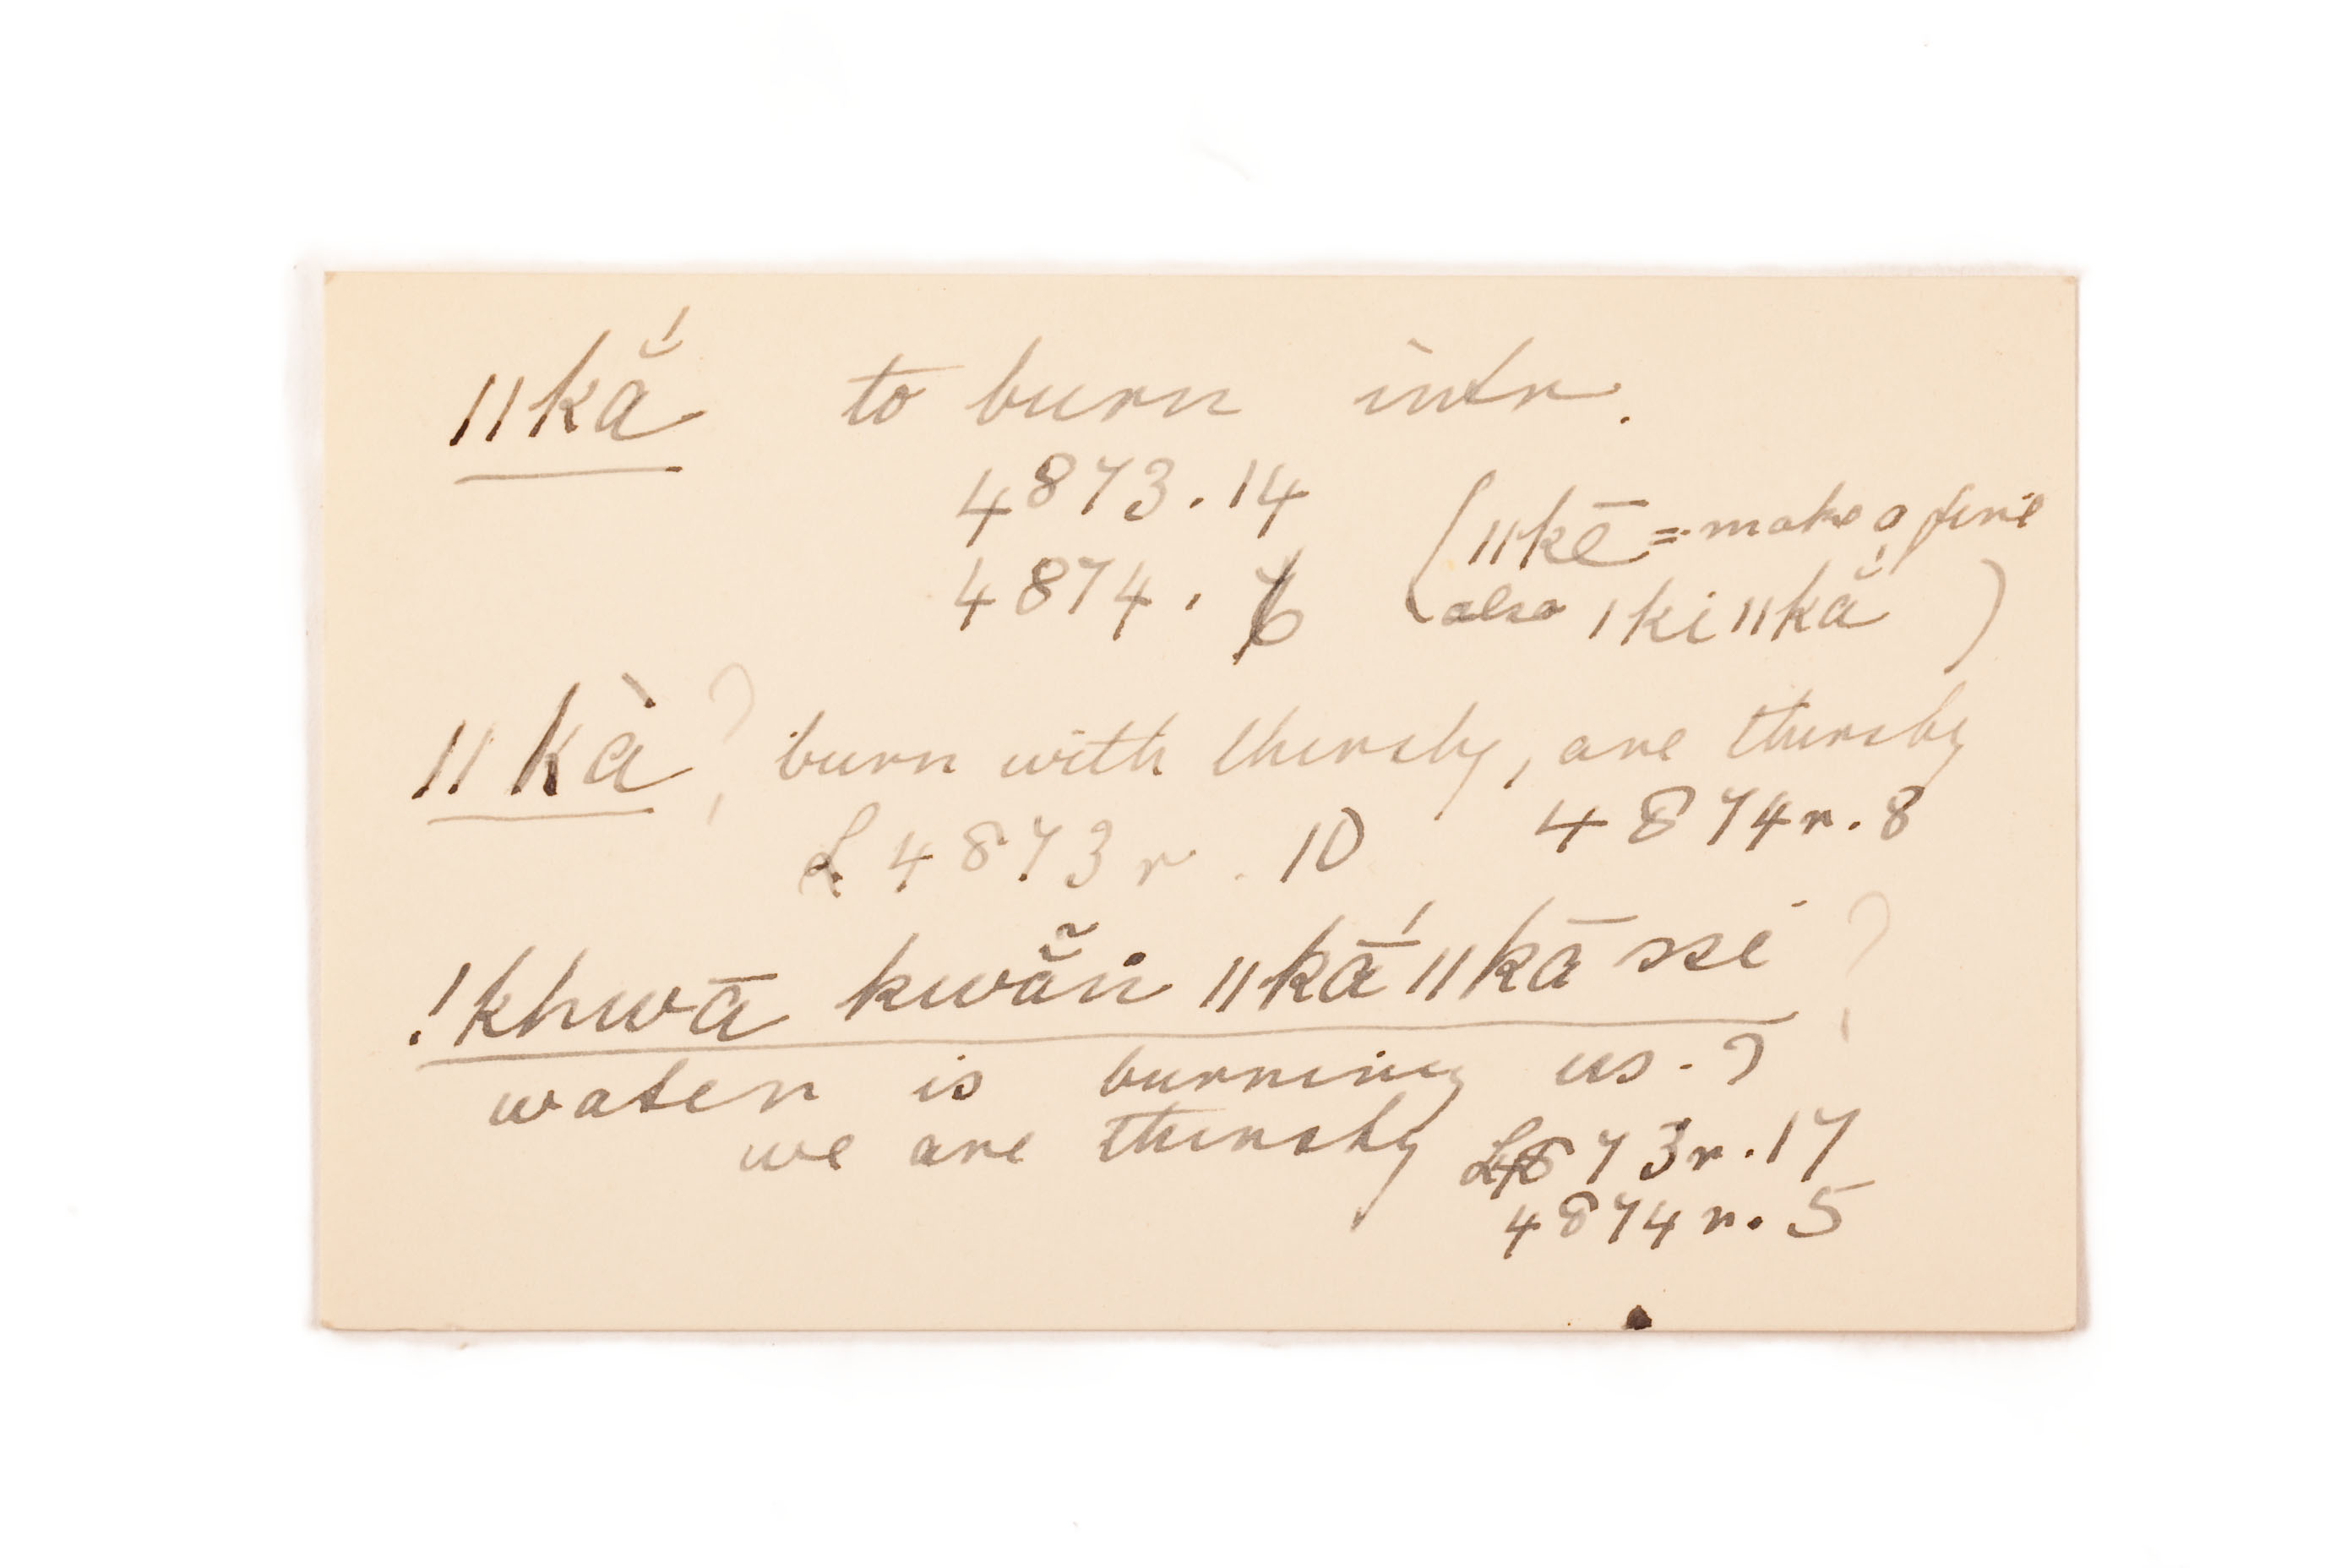 ǁkắ to burn intr.
4873.14
(ǁkē = make a fire
4874.6
also ǀki ǁkắ )
ǁkà ? burn with thirsty, are thirsty
L 4873 r. 10 4874 r. 8
!khwā kwẵṅ ǁkā́ ǁkā ssē ?
water is burning us. ?
we are thirsty L4873r.17
4874 r. 5